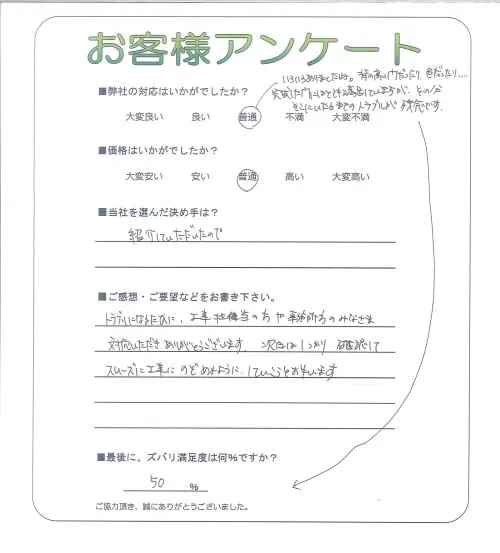 お客様アンケート
■弊社の対応はいかがでしたか?
いろいろありましたね。塀の高い門だったり、色だったり.....
完成した門にはとても満足していますが、その分
そこにいたるまでのトラブルが残念です。
大変良い 良い 普通 不満 大変不満
■価格はいかがでしたか?
大変安い 安い 普通 高い 大変高い
■当社を選んだ決め手は?
紹介していただいたので
■ご感想・ご要望などをお書き下さい。
トラブルになるたびに、工事担当の方や事務所のみなさま
対応いただきありがとうございます。次回はしっかり確認して
スムーズに工事にのぞめるように、していこうと思います
■最後に、ズバリ満足度は何%ですか?
50 %
ご協力頂き、誠にありがとうございました。